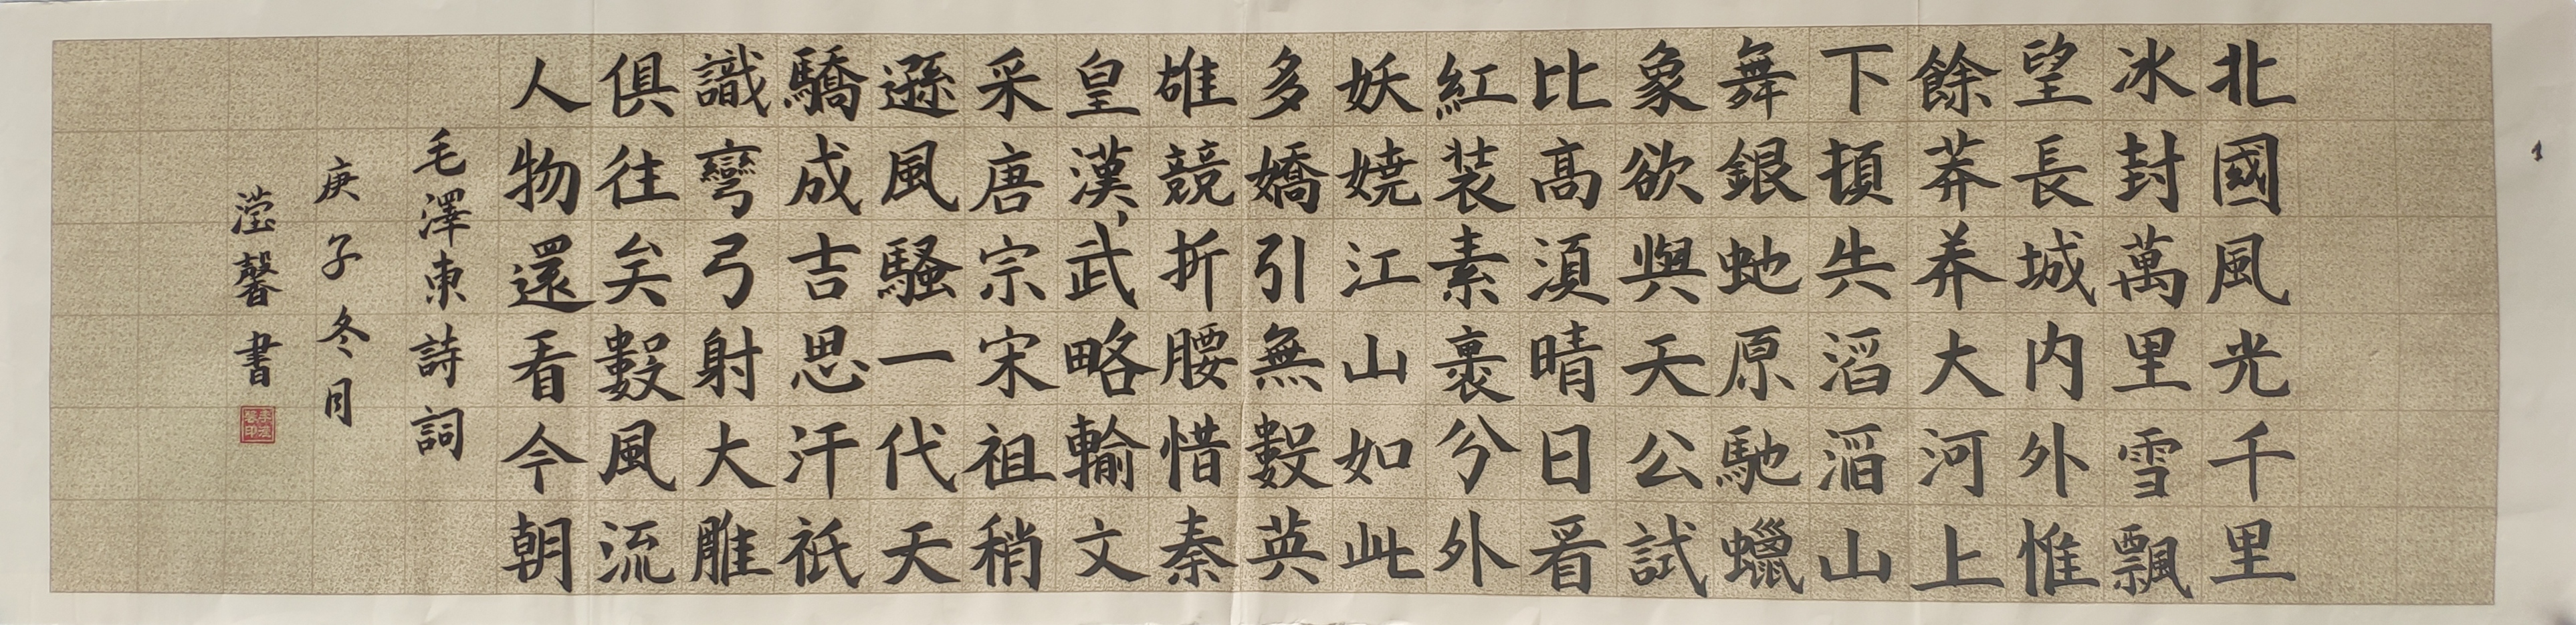 北國風光千里
冰封萬里雪飄
望長城内外惟
餘莽莽大河上
下頓失滔滔山
舞銀虵原馳蠟
象欲與天公試
比髙湏晴日看
紅装素裹兮外
妖娆江山如此
多嬌引無數英
雄競折腰惜秦
皇漢武略輸文
采唐宗宋祖稍
遜風騷一代天
驕成吉思汗祇
識彎弓射大雕
俱往矣數風流
人物還看今朝
毛澤東詩詞
庚子冬月
滢馨書